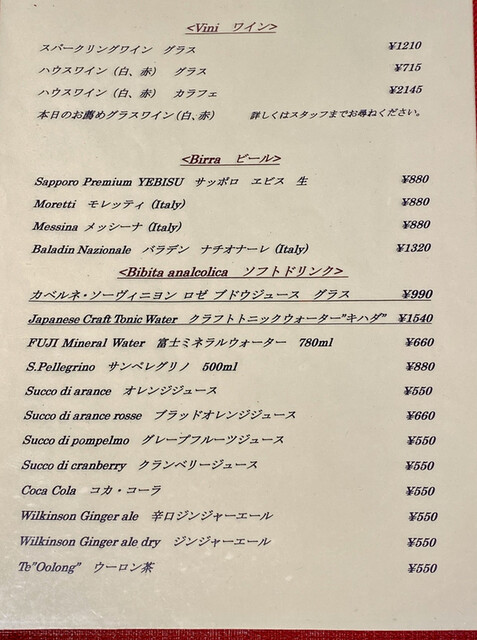 <Vini　ワイン>
スパークリングワイン　グラス　¥1210
ハウスワイン（白、赤）　グラス　¥715
ハウスワイン（白、赤）　カラフェ　¥2145
本日のお薦めグラスワイン（白、赤）　詳しくはスタッフまでお尋ねください。
<Birra　ビール>
Sapporo Premium YEBISU　サッポロ　エビス　生　¥880
Moretti　モレッティ (Italy)　¥880
Messina メッシーナ (Italy)　¥880
Baladin Nazionale　バラデン　ナチオナーレ (Italy)　¥1320
<Bibita analcolica　ソフトドリンク>
カベルネ・ソーヴィニヨン ロゼ ブドウジュース　グラス　¥990
Japanese Craft Tonic Water　クラフトトニックウォーター"キハダ"　¥1540
FUJI Mineral Water　富士ミネラルウォーター　780ml　¥660
S.Pellegrino　サンペレグリノ　500ml　¥880
Succo di arance　オレンジジュース　¥550
Succo di arance rosse　ブラッドオレンジジュース　¥660
Succo di pompelmo　グレープフルーツジュース　¥550
Succo di cranberry　クランベリージュース　¥550
Coca Cola　コカ・コーラ　¥550
Wilkinson Ginger ale　辛口ジンジャーエール　¥550
Wilkinson Ginger ale dry　ジンジャーエール　¥550
Te"Oolong"　ウーロン茶　¥550